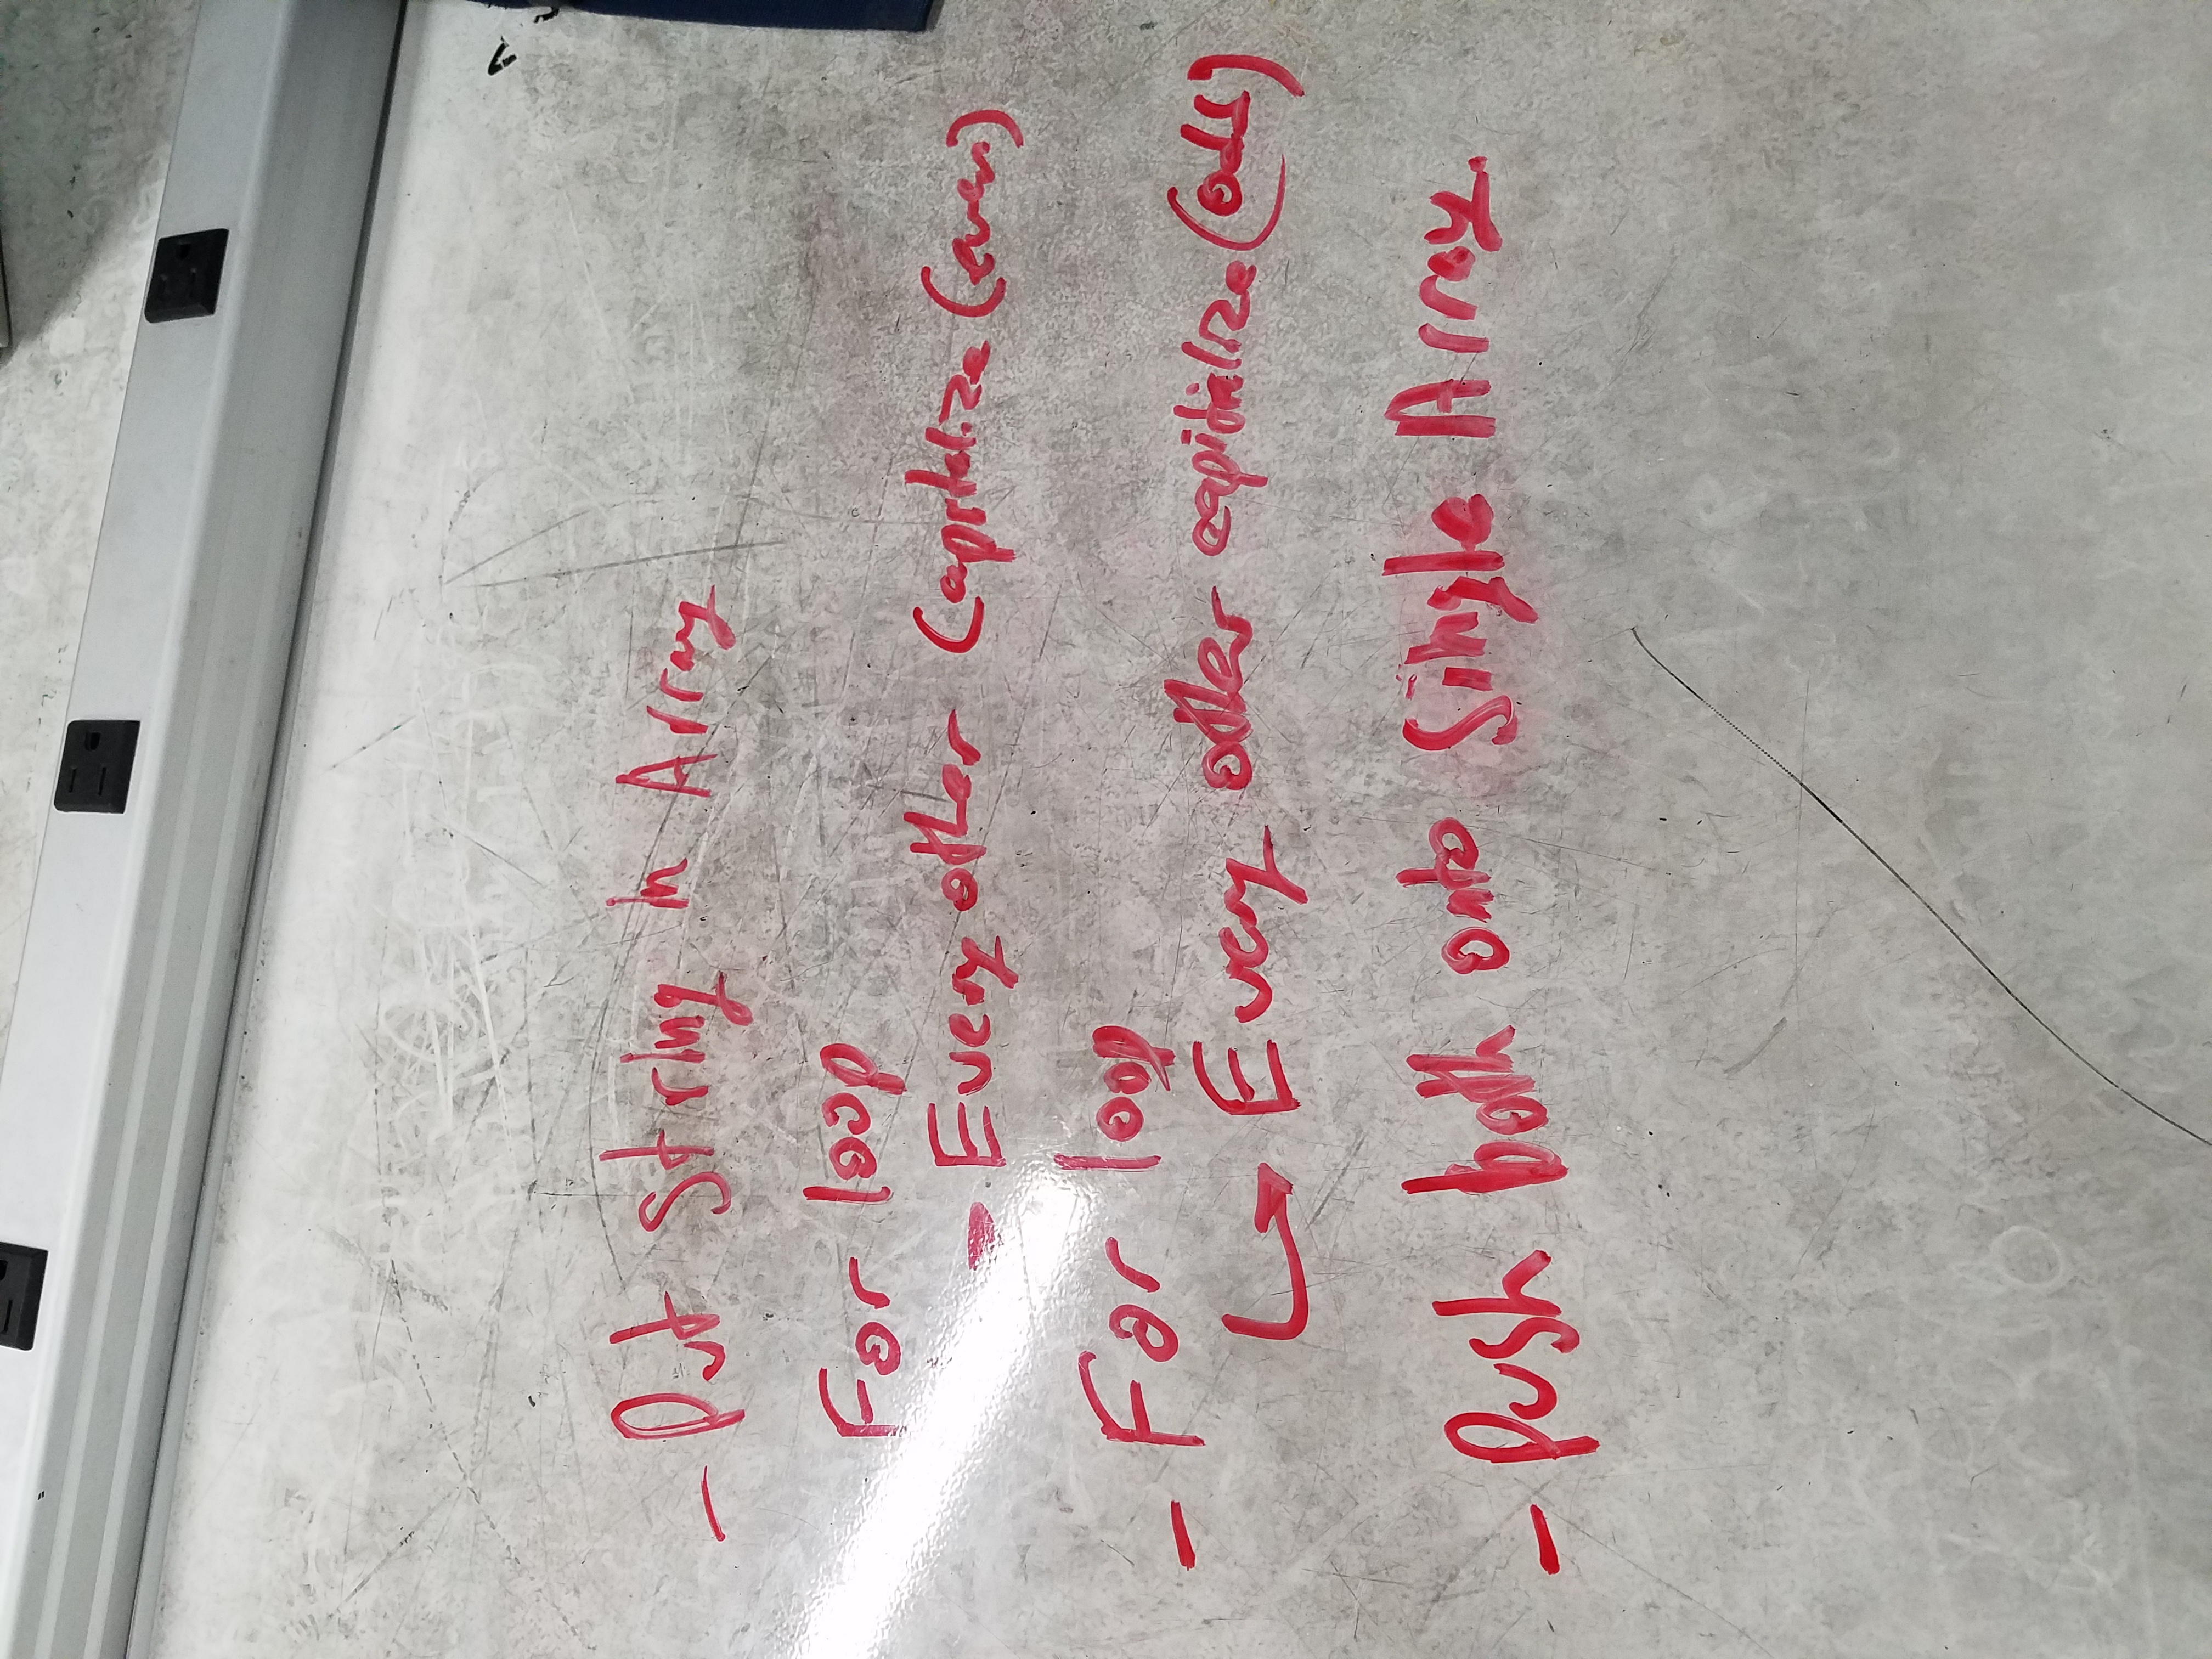 - Put string in Array
For loop
- Every other Capitalize (even)
- For loop
↳ Every other capitialize (odd)
- Push both onto Single Array.